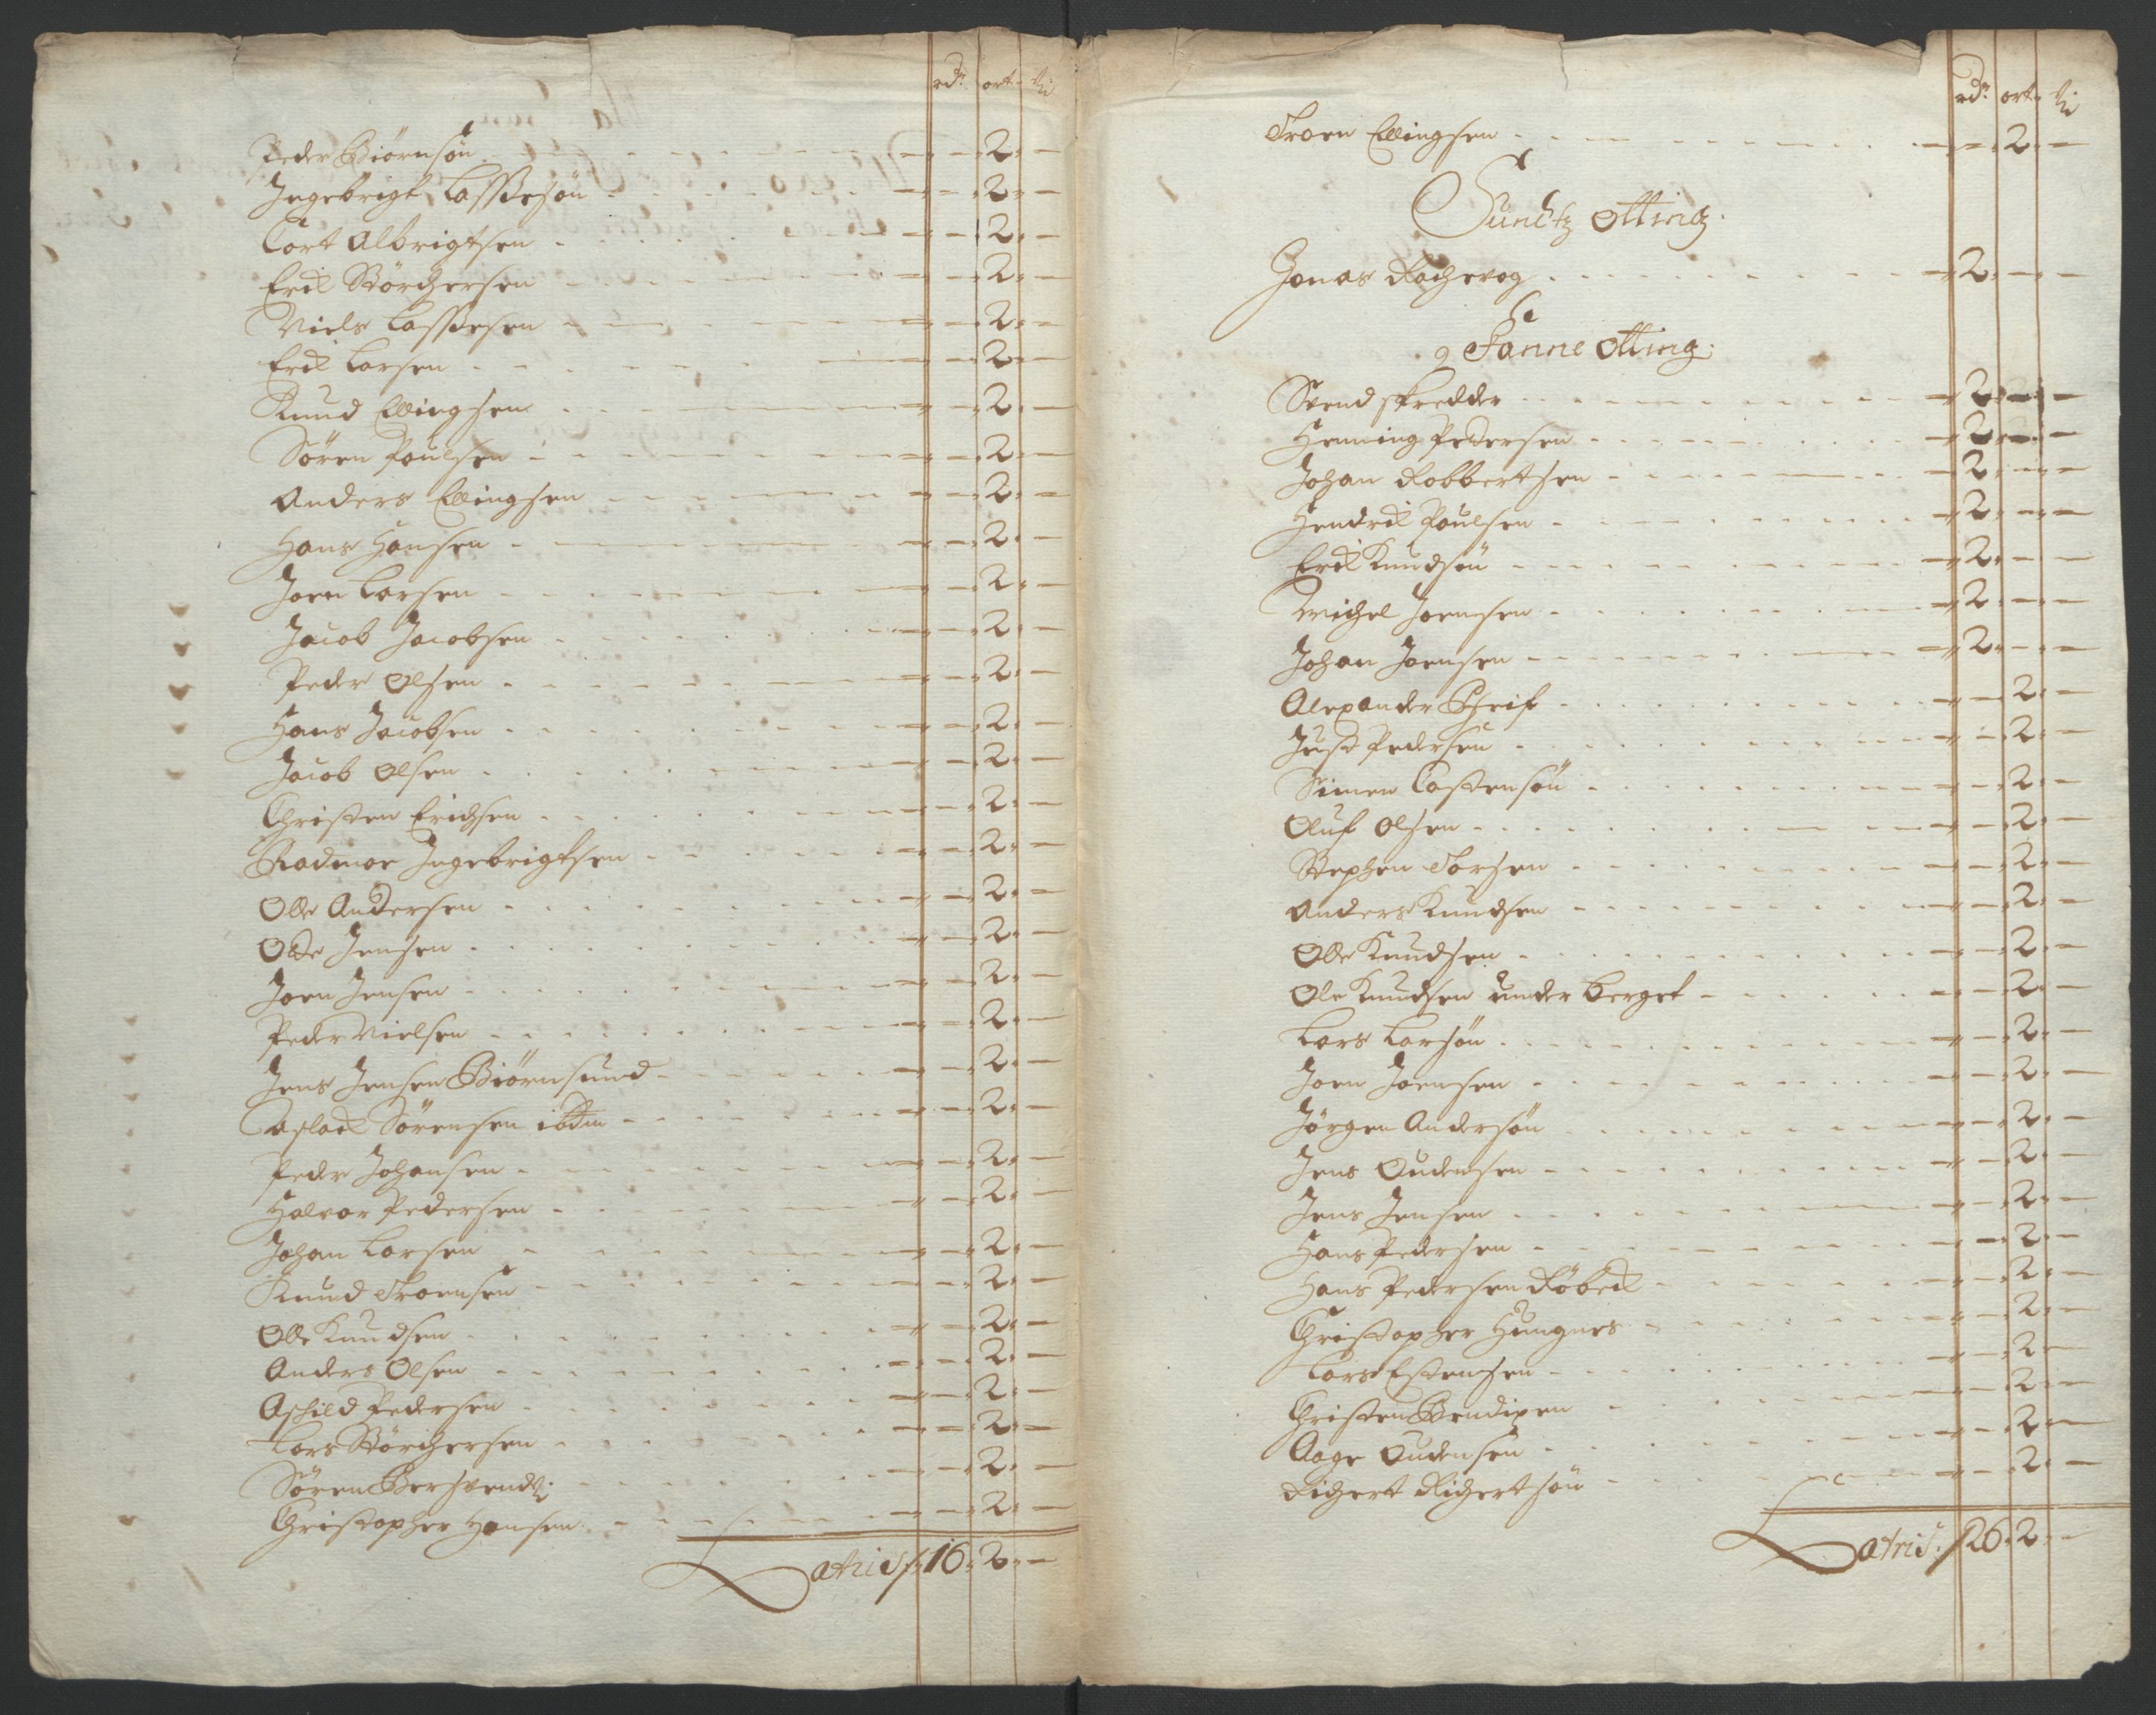 rdr. ort. ß
Peder Biörnsön - - 2 -
Ingebrigt Lassesön - - 2 -
Cort Albrigtsen - - 2 -
Erik Börgersen - - 2 -
Niels Lassesen - - 2 -
Erik Larsen - - 2 -
Knud Ellingsen - - 2 -
Sören Poulsen - - 2 -
Anders Ellingsen - - 2 -
Hans Hansen - - 2 -
Joen Larsen - - 2 -
Jacob Jacobsen - - 2 -
Peder Olsen - - 2 -
Hans Jacobsen - - 2 -
Jacob Olsen - - 2 -
Christen Erichsen - - 2 -
Radmor Ingebrigtsen - - 2 -
Olle Andersen - - 2 -
Olle Jensen - - 2 -
Joen Jensen - - 2 -
Peder Nielsen - - 2 -
Jens Jensen Biörnsund - - 2 -
Aslack Sörensen ibdm - - 2 -
Peder Johansen - - 2 -
Halvor Pedersen - - 2 -
Johan Larsen - - 2 -
Knud Troensen - - 2 -
Olle Knudsen - - 2 -
Anders Olsen - - 2 -
Aschild Pedersen - - 2 -
Lars Börgersen - - 2 -
Sören - - 2 -
Christopher Hansen - - 2 -
Latris 16 2 -
rdr. ort. ß
Troen Ellingsen - - 2 -
Sundtz Otting
Jonas Rachevog - 2 - -
Fanne Otting
Svend skredder - 2 - -
Henning Pedersen - 2 - -
Johan Robbertsen - 2 - -
Hendrik Poulsen - 2 - -
Erik Knudsön - 2 - -
Michel Joensen - 2 - -
Johan Joensen - 2 - -
Alexander Greif - - 2 -
Just Pedersen - - 2 -
Simen Castensön - - 2 -
Oluf Olsen - - 2 -
Stephen Torsen - - 2 -
Anders Knudsen - - 2 -
Olle Knudsen - - 2 -
Ole Knudsen under berget - - 2 -
Lars Larsön - - 2 -
Joen Joensen - - 2 -
Jörgen Andersön - - 2 -
Jens Oudensen - - 2 -
Jens Jensen - - 2 -
Hans Pedersen - - 2 -
Hans Pedersen Röbeck - - 2 -
Christopher Hungnes - - 2 -
Lars Estensen - - 2 -
Christen Bendixen - - 2 -
Aage Oudensen - - 2 -
Richert Richertsön - - 2 -
Latris 26 2 -